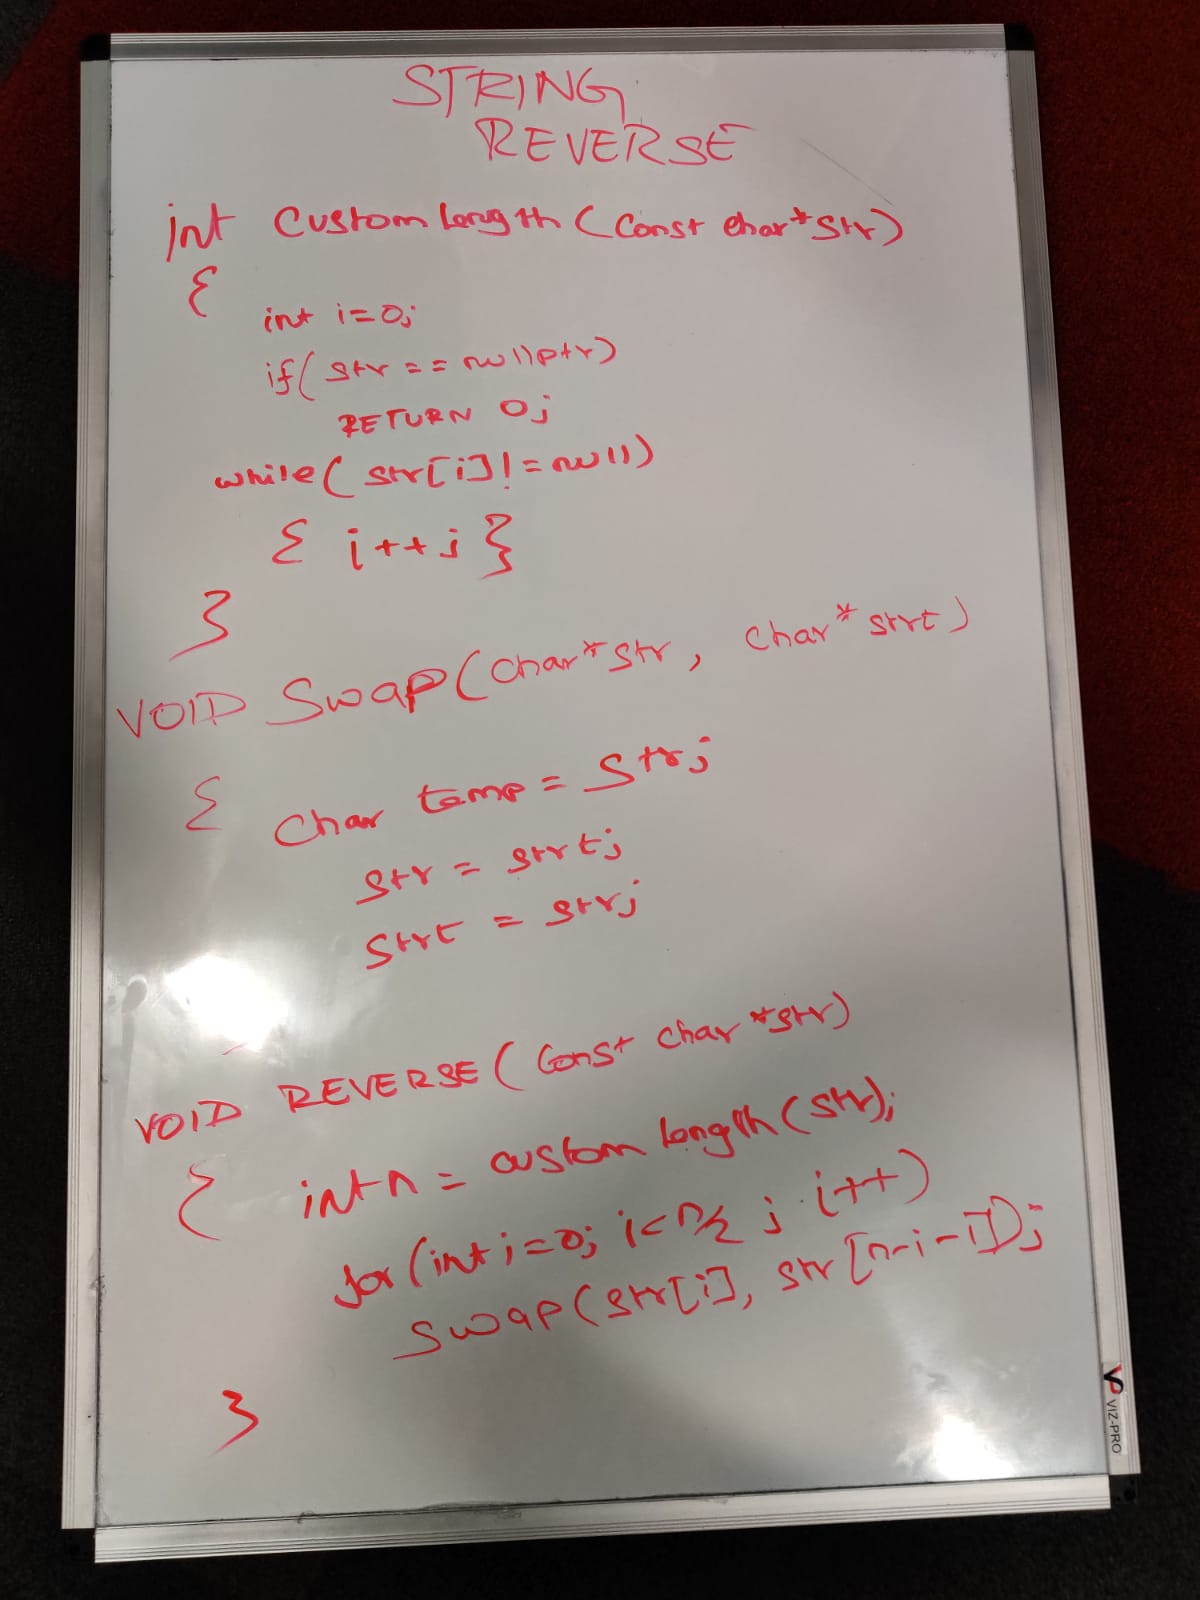 STRING
REVERSE
int Custom Length (Const char*str)
{
int i=0;
if( str == nullptr)
RETURN 0;
while( str[i]!=null)
{ i++; }
}
VOID Swap(char*str, char* strt)
{ Char temp = Str;
str = strt;
strt = str;
VOID REVERSE( Const char *str)
{ int n = custom length (str);
for (int i=0; i<n/2 ; i++)
swap(str[i], str[n-i-1]);
}
VP VIZ-PRO